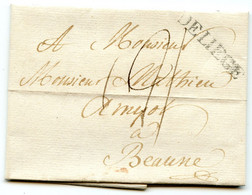 DE LIEGE
A Monsieur
Monsieur Mathieu
Amyot
à
Beaune